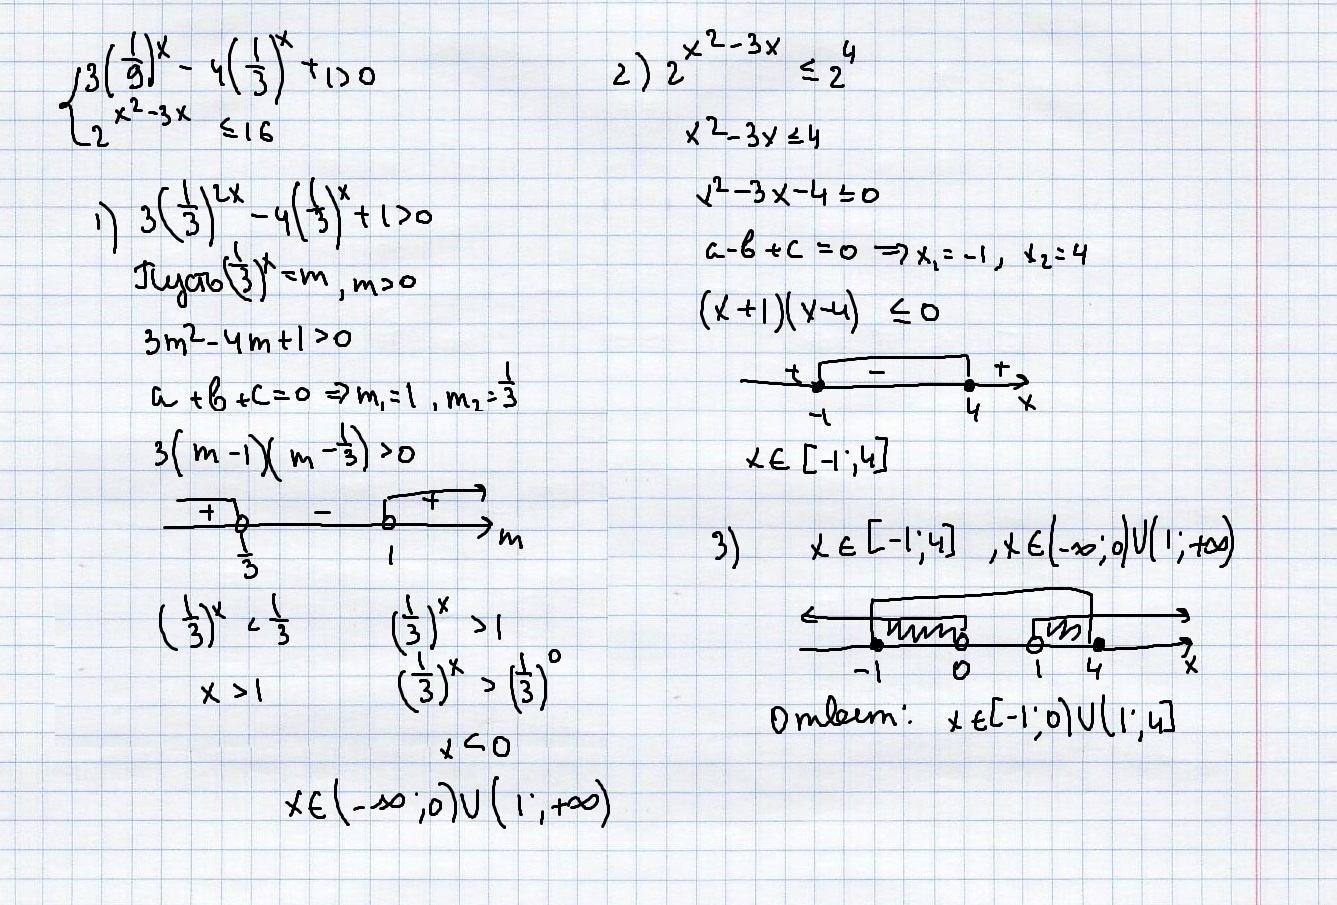 3(1/9)^x - 4(1/3)^x + 1>0
2^(x²-3x) ≤16
1) 3(1/3)^(2x) - 4(1/3)^x + 1>0
Пусть (1/3)^x = m, m>0
3m²-4m+1>0
a+b+c=0 ⇒ m₁=1, m₂=1/3
3(m-1)(m-1/3)>0
+ - +
1/3 1 m
(1/3)^x < 1/3 (1/3)^x > 1
x>1 (1/3)^x > (1/3)^0
x<0
x∈(-∞;0)∪(1;+∞)
2) 2^(x²-3x) ≤ 2^4
x²-3x≤4
x²-3x-4≤0
a-b+c=0 ⇒ x₁=-1, x₂=4
(x+1)(x-4) ≤ 0
+ - +
-1 4 x
x∈[-1;4]
3) x∈[-1;4], x∈(-∞;0)∪(1;+∞)
-1 0 1 4 x
Ответ: x∈[-1;0)∪(1;4]